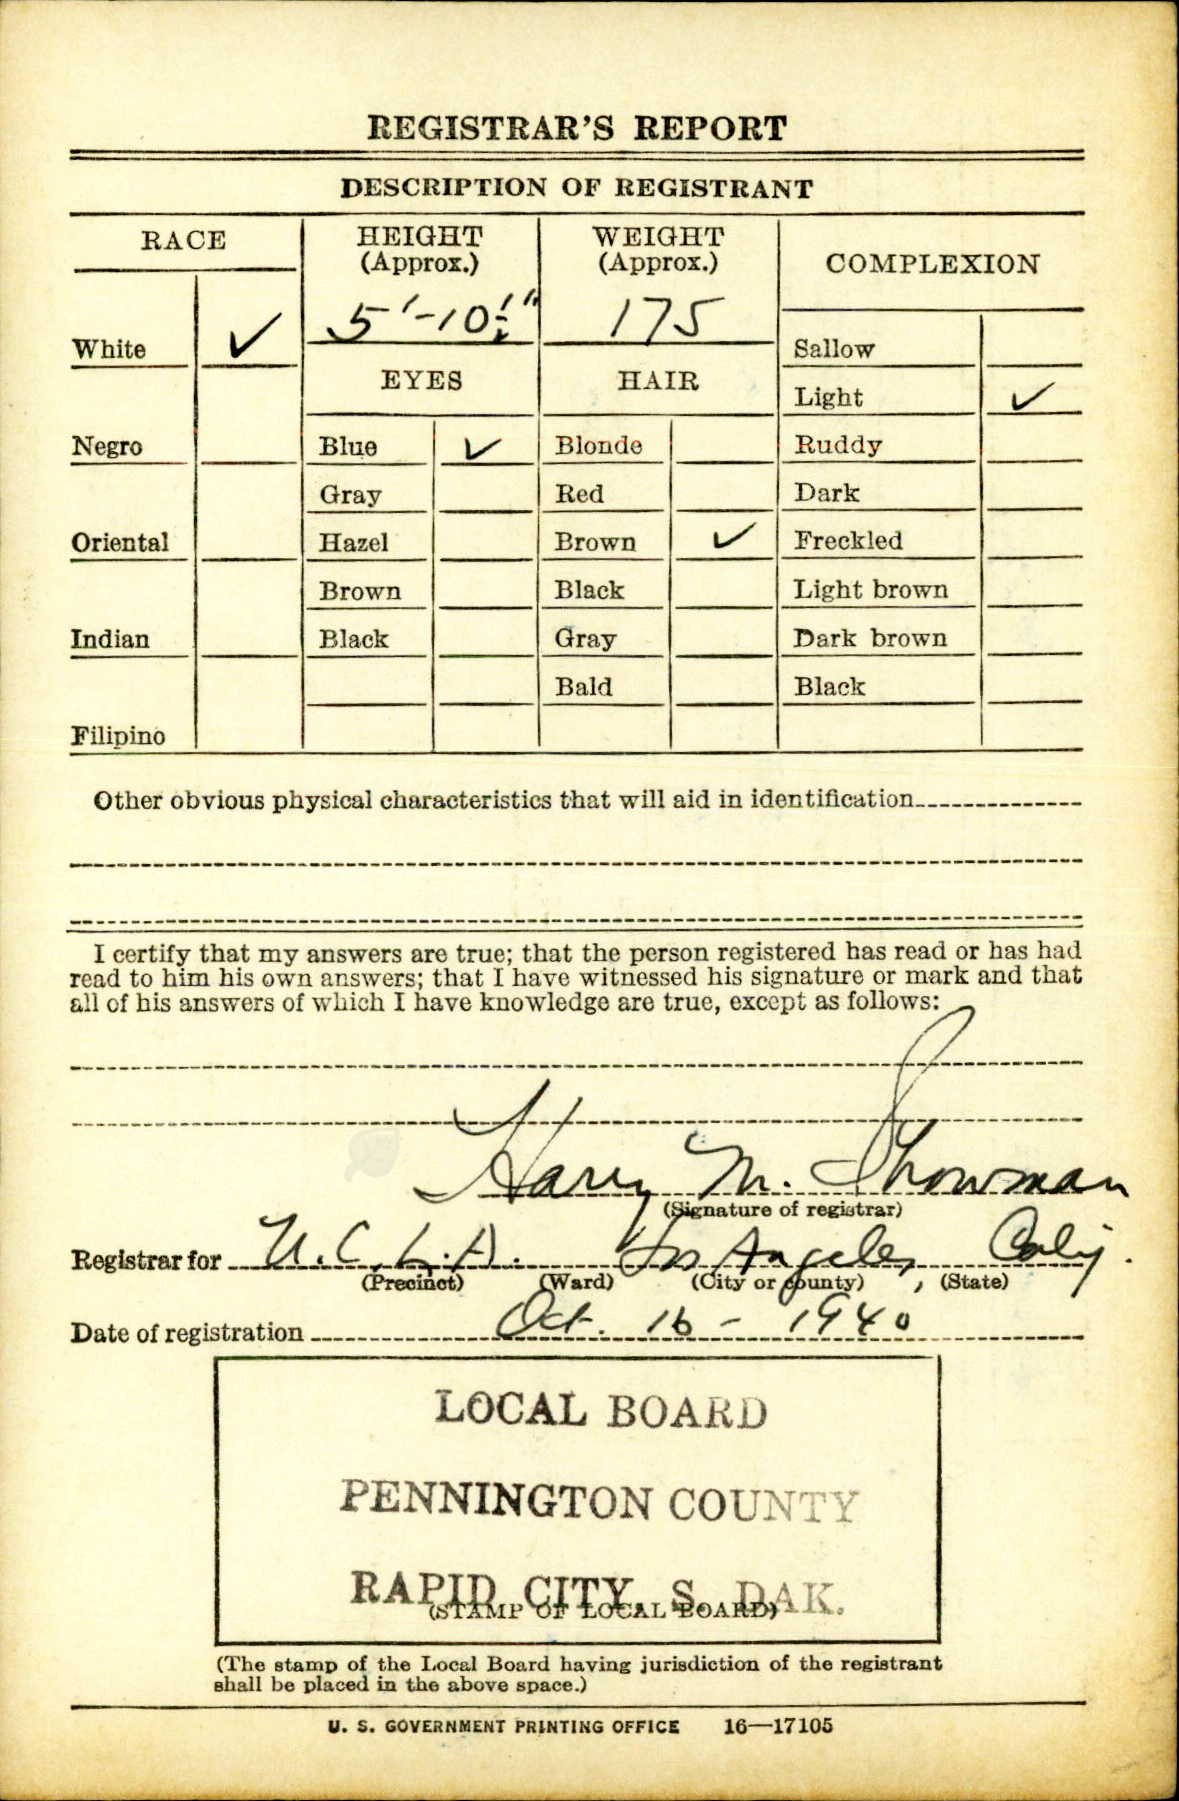 REGISTRAR'S REPORT
DESCRIPTION OF REGISTRANT
RACE
HEIGHT
(Approx.)
WEIGHT
(Approx.)
COMPLEXION
5'-10½"
175
White ✓
Sallow
EYES
HAIR
Light ✓
Negro
Blue ✓
Blonde
Ruddy
Gray
Red
Dark
Oriental
Hazel
Brown ✓
Freckled
Brown
Black
Light brown
Indian
Black
Gray
Dark brown
Bald
Black
Filipino
Other obvious physical characteristics that will aid in identification
I certify that my answers are true; that the person registered has read or has had
read to him his own answers; that I have witnessed his signature or mark and that
all of his answers of which I have knowledge are true, except as follows:
Harry M. Showman
(Signature of registrar)
Registrar for U.C.L.A. Los Angeles, Calif.
(Precinct) (Ward) (City or county) (State)
Date of registration Oct. 16 - 1940
LOCAL BOARD
PENNINGTON COUNTY
RAPID CITY, S. DAK.
(STAMP OF LOCAL BOARD)
(The stamp of the Local Board having jurisdiction of the registrant
shall be placed in the above space.)
U. S. GOVERNMENT PRINTING OFFICE 16—17105